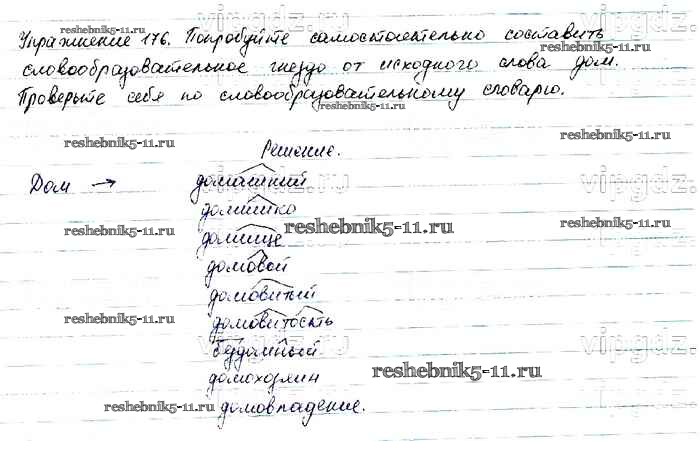 vipgdz.ru vipgdz.
Упражнение 176. Попробуйте самостоятельно составить
reshebnik5-11.ru
словообразовательное гнездо от исходного слова дом.
Проверьте себя по словообразовательному словарю.
reshebnik5-11.ru
reshebnik5-11.ru Решение. reshebnik5-11.ru
Дом → домашний
vipgdz.ru vipgdz.
домишко
reshebnik5-11.ru reshebnik5-11.ru reshebnik5-11.ru
домище
vipgdz.
домовой
домовитый
reshebnik5-11.ru домовитость reshebnik5-11.ru
бездомный
vipgdz.ru vipgdz.
домохозяин reshebnik5-11.ru
reshebnik5-11.ru домовладение. reshebnik5-11.ru
vipgdz.